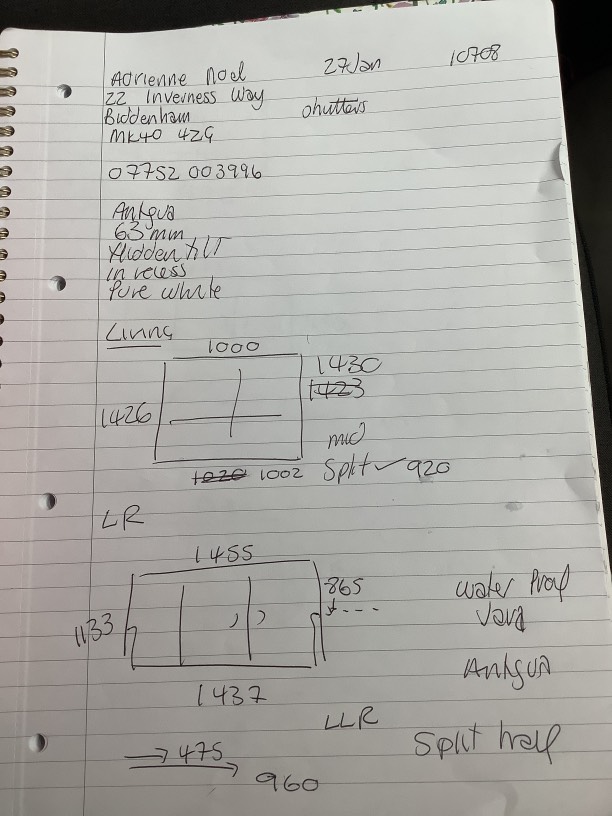 Adrienne Noel 27 Jan 10708
22 Inverness Way
Biddenham shutters
MK40 4ZG
07752 003996
Antgua
63 mm
Hidden tilt
in recess
Pure white
Living
1000
1430
1423
1426
mid
1020 1002 Split ✓ 920
LR
1455
865
1133
Water Proof
Antgua
1437
LLR
Split half
→ 475
→ 960